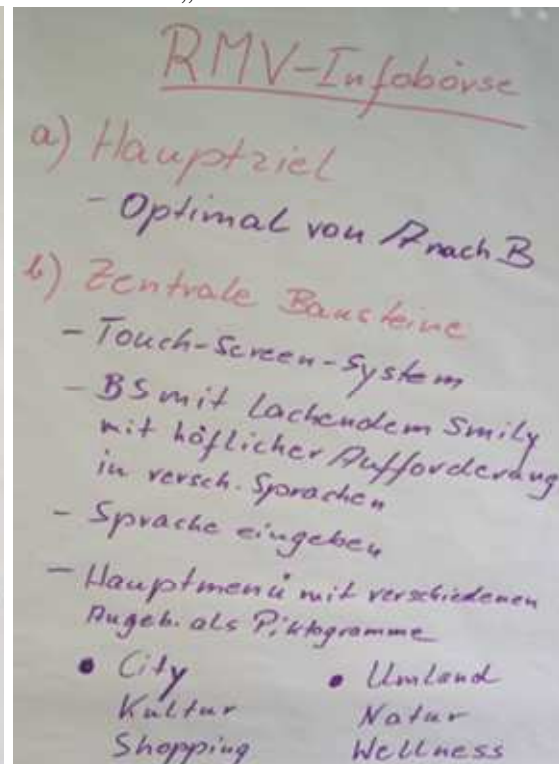 RMV-Infobörse
a) Hauptziel
- Optimal von A nach B
b) Zentrale Bausteine
- Touch-Screen-System
- BS mit lachendem Smily
mit höflicher Aufforderung
in versch. Sprachen
- Sprache eingeben
- Hauptmenü mit verschiedenen
Angeb. als Piktogramme
• City • Umland
Kultur Natur
Shopping Wellness